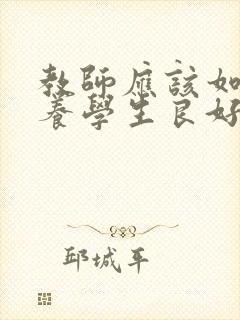 教師應該如
養學生良好
邱城平